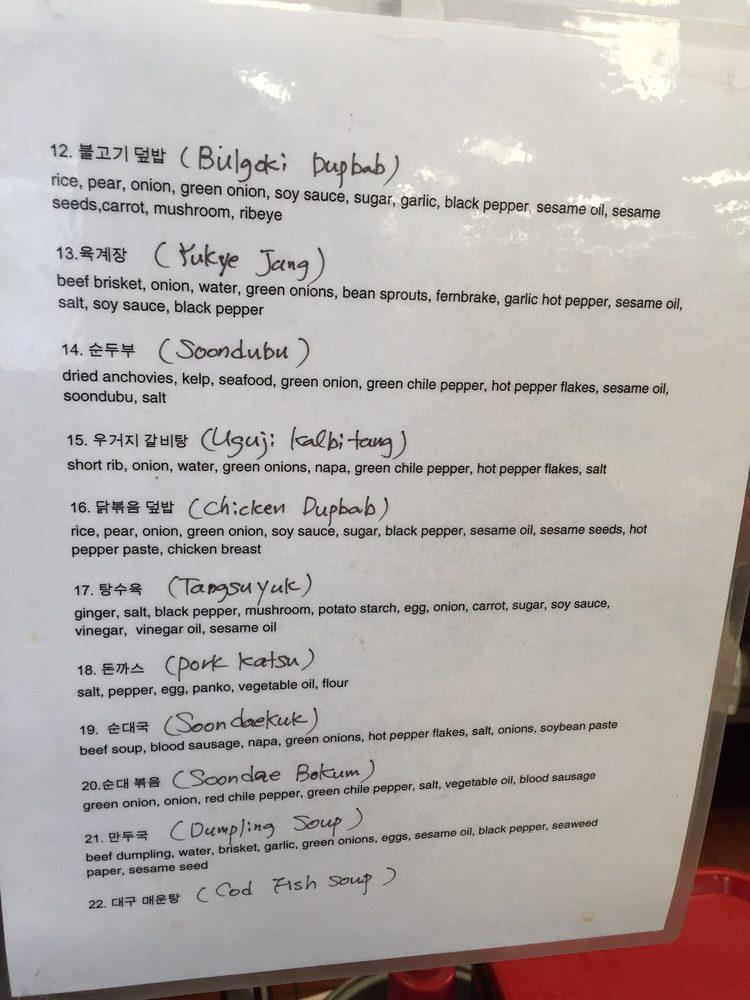 12. 불고기 덮밥 (Bulgoki Dupbab)
rice, pear, onion, green onion, soy sauce, sugar, garlic, black pepper, sesame oil, sesame
seeds,carrot, mushroom, ribeye
13.육게장 (Yukye Jang)
beef brisket, onion, water, green onions, bean sprouts, fernbrake, garlic hot pepper, sesame oil,
salt, soy sauce, black pepper
14. 순두부 (Soondubu)
dried anchovies, kelp, seafood, green onion, green chile pepper, hot pepper flakes, sesame oil,
soondubu, salt
15. 우거지 갈비탕 (Uguji Kalbitang)
short rib, onion, water, green onions, napa, green chile pepper, hot pepper flakes, salt
16. 닭볶음 덮밥 (Chicken Dupbab)
rice, pear, onion, green onion, soy sauce, sugar, black pepper, sesame oil, sesame seeds, hot
pepper paste, chicken breast
17. 탕수육 (Tangsuyuk)
ginger, salt, black pepper, mushroom, potato starch, egg, onion, carrot, sugar, soy sauce,
vinegar, vinegar oil, sesame oil
18. 돈까스 (pork katsu)
salt, pepper, egg, panko, vegetable oil, flour
19. 순대국 (Soondaekuk)
beef soup, blood sausage, napa, green onions, hot pepper flakes, salt, onions, soybean paste
20.순대 볶음 (Soondae Bokum)
green onion, onion, red chile pepper, green chile pepper, salt, vegetable oil, blood sausage
21. 만두국 (Dumpling Soup)
beef dumpling, water, brisket, garlic, green onions, eggs, sesame oil, black pepper, seaweed
paper, sesame seed
22. 대구 매운탕 (Cod Fish soup)